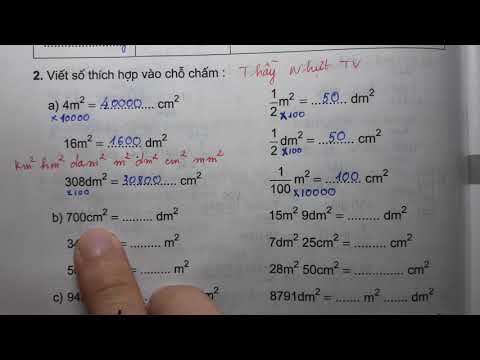 2. Viết số thích hợp vào chỗ chấm : Thầy Nhựt TV
a) 4m² = ...40000.... cm²
×10000
1/2 m² = ...50.... dm²
×100
16m² = ...1600.... dm²
1/2 dm² = ...50.... cm²
×100
km² hm² dam² m² dm² cm² mm²
308dm² = ...30800.... cm²
×100
1/100 m² = ...100... cm²
×10000
b) 700cm² = ......... dm²
15m² 9dm² = ....... dm²
= ......... m²
7dm² 25cm² = ....... cm²
= ......... m²
28m² 50cm² = ............ cm²
c) = ......... dm²
8791dm² = ....... m² ....... dm²